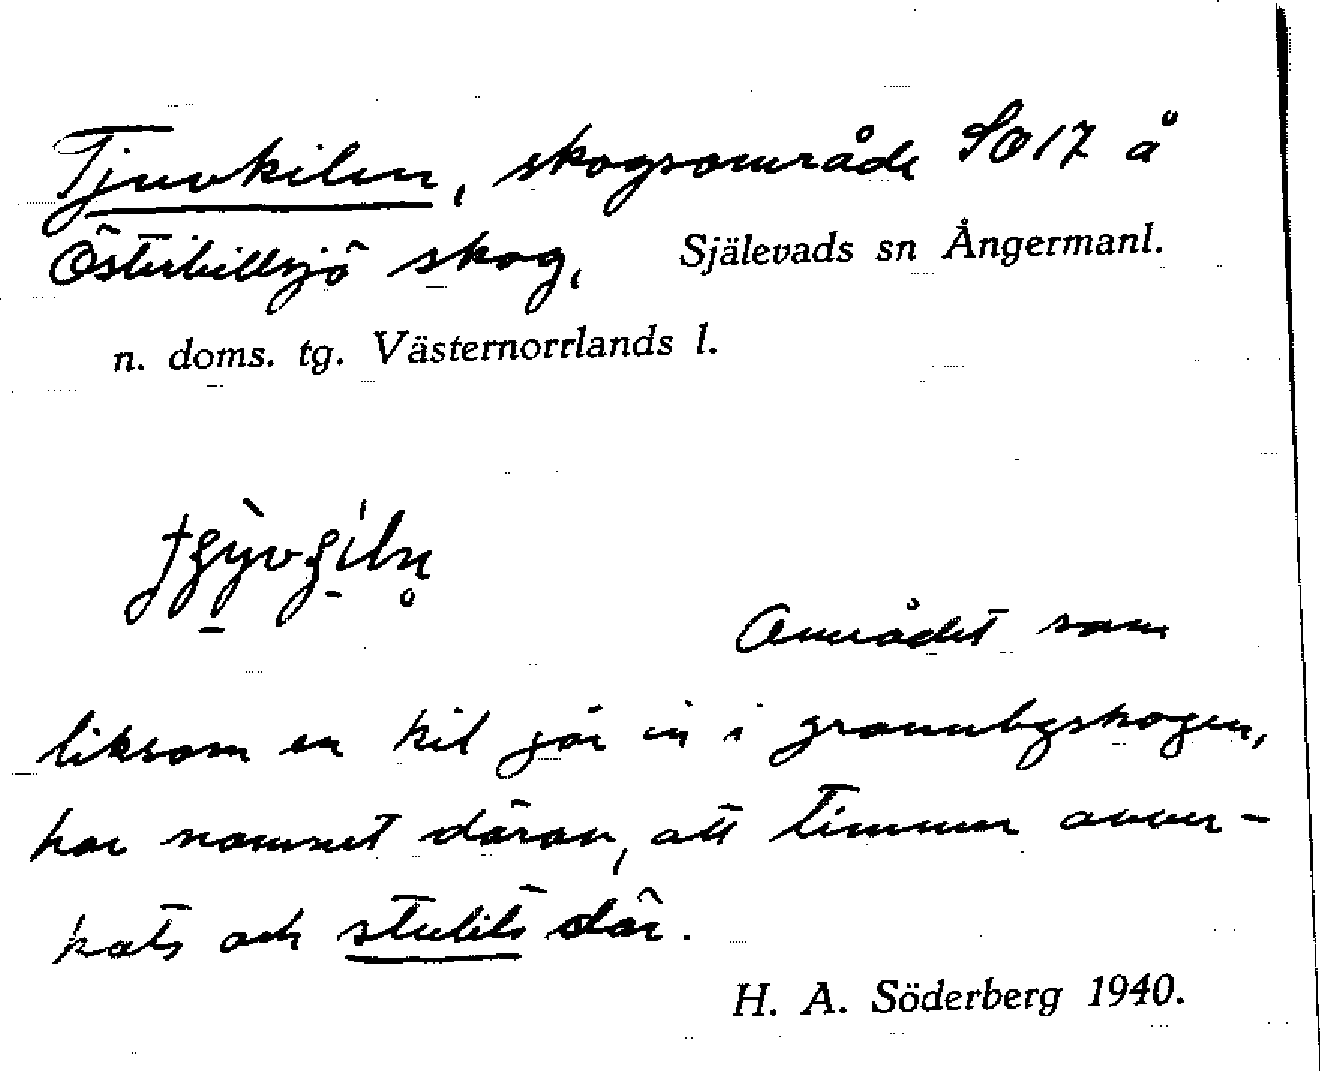 Tjuvkilen, skogsområde SO17 å
Österbillsjö skog,   Själevads sn Ångermanl.
n. doms. tg. Västernorrlands l.
Området som
liksom en kil går in i grannbyskogen,
har namnet därav, att timmer avver-
kats och stulits där.
H. A. Söderberg 1940.